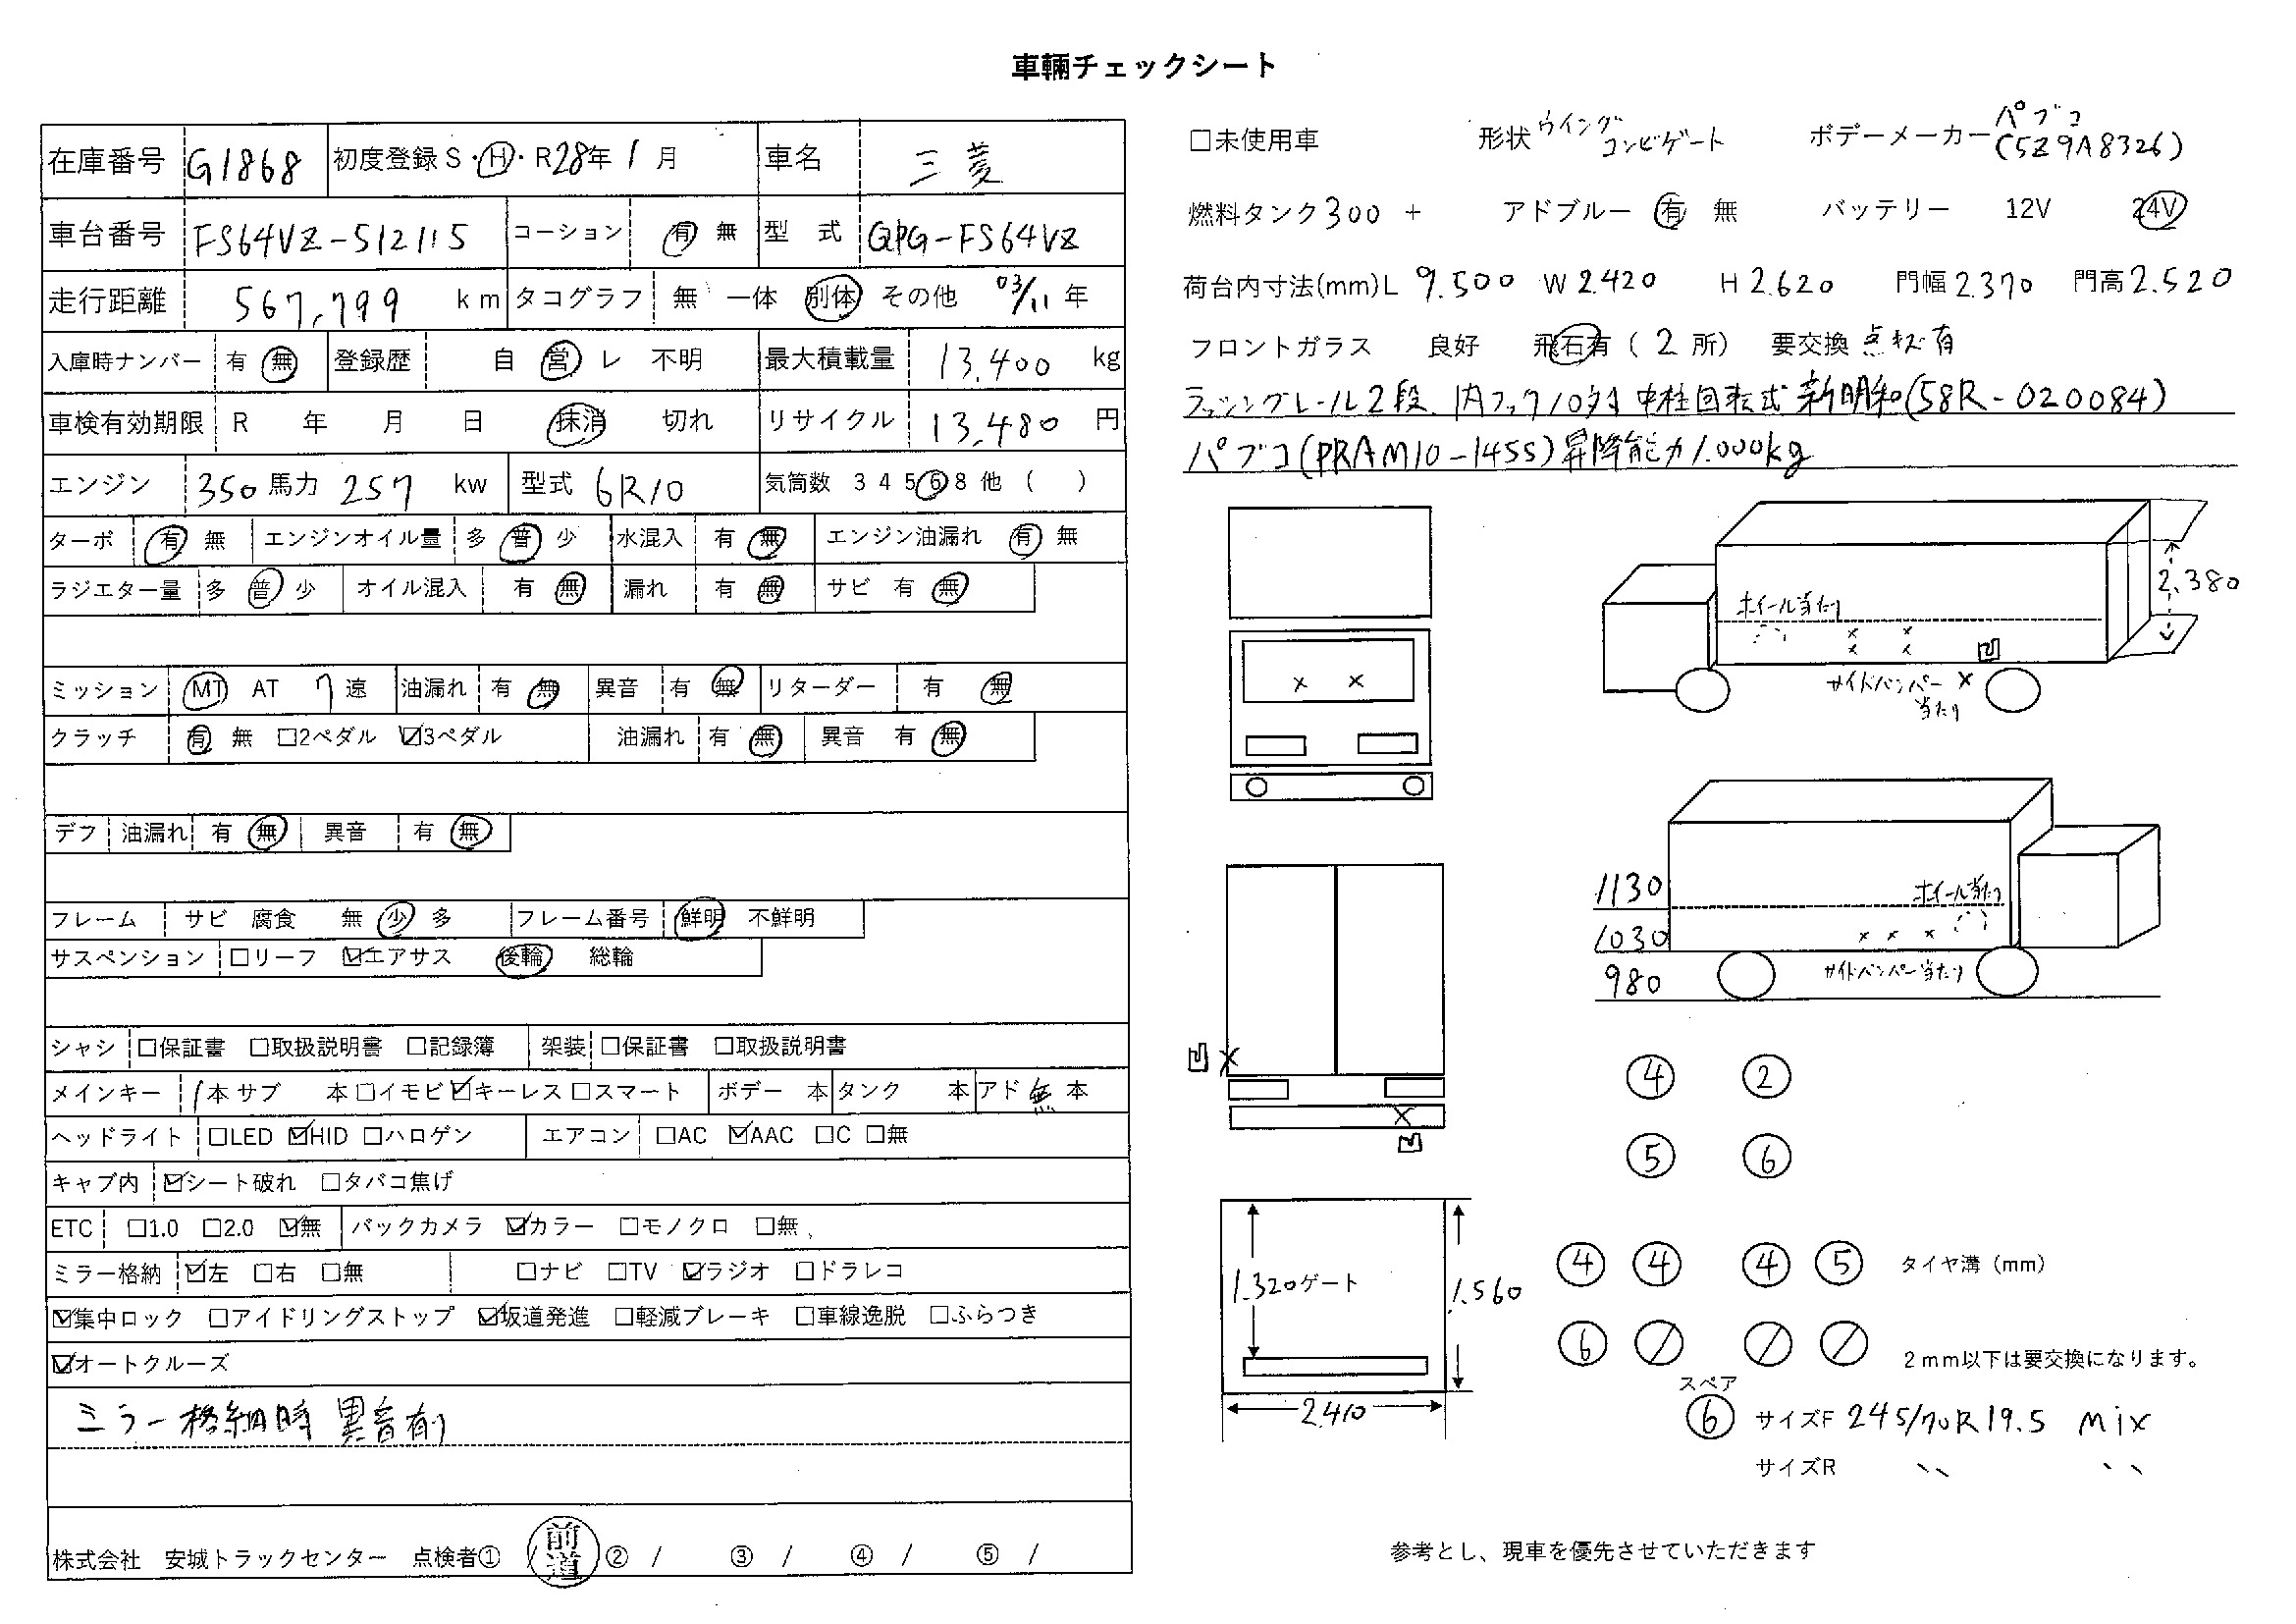 車輛チェックシート
在庫番号 G1868 初度登録 S・H・R28年 1 月 車名 三菱
車台番号 FS64VZ-512115 コーション 有 無 型 式 QPG-FS64VZ
走行距離 567,799 km タコグラフ 無 一体 別体 その他 03/11 年
入庫時ナンバー 有 無 登録歴 自 営 レ 不明 最大積載量 13,400 kg
車検有効期限 R 年 月 日 抹消 切れ リサイクル 13,480 円
エンジン 350 馬力 257 kw 型式 6R10 気筒数 3 4 5 6 8 他 ( )
ターボ 有 無 エンジンオイル量 多 普 少 水混入 有 無 エンジン油漏れ 有 無
ラジエター量 多 普 少 オイル混入 有 無 漏れ 有 無 サビ 有 無
ミッション MT AT 7 速 油漏れ 有 無 異音 有 無 リターダー 有 無
クラッチ 有 無 □2ペダル ☑3ペダル 油漏れ 有 無 異音 有 無
デフ 油漏れ 有 無 異音 有 無
フレーム サビ 腐食 無 少 多 フレーム番号 鮮明 不鮮明
サスペンション □リーフ ☑エアサス 後輪 総輪
シャシ □保証書 □取扱説明書 □記録簿 架装 □保証書 □取扱説明書
メインキー 1本 サブ 本 □イモビ ☑キーレス □スマート ボデー 本 タンク 本 アド 無 本
ヘッドライト □LED ☑HID □ハロゲン エアコン □AC ☑AAC □C □無
キャブ内 ☑シート破れ □タバコ焦げ
ETC □1.0 □2.0 ☑無 バックカメラ ☑カラー □モノクロ □無
ミラー格納 ☑左 □右 □無 □ナビ □TV ☑ラジオ □ドラレコ
☑集中ロック □アイドリングストップ ☑坂道発進 □軽減ブレーキ □車線逸脱 □ふらつき
☑オートクルーズ
ミラー格納時 異音有り
株式会社 安城トラックセンター 点検者① / 前道 ② / ③ / ④ / ⑤ /
□未使用車 形状 ウイング コンビゲート ボデーメーカー パブコ (5Z9A8326)
燃料タンク 300 + アドブルー 有 無 バッテリー 12V 24V
荷台内寸法(mm) L 9.500 W 2.420 H 2.620 門幅 2.370 門高 2.520
フロントガラス 良好 飛石有 ( 2 所) 要交換 点キズ有
ラッシングレール2段、内フック10対 中柱回転式 新明和(58R-020084)
パブコ(PRAM10-1455)昇降能力1.000kg
2.380
ホイール当たり
サイドバンパー ×
当たり
1130
ホイール当たり
1030
サイドバンパー当たり
980
④ ②
⑤ ⑥
④ ④ ④ ⑤ タイヤ溝（mm）
⑥ 2mm以下は要交換になります。
1.320 ゲート 1.560
2.410
スペア
⑥ サイズF 245/70R19.5 mix
サイズR 〃 〃
参考とし、現車を優先させていただきます